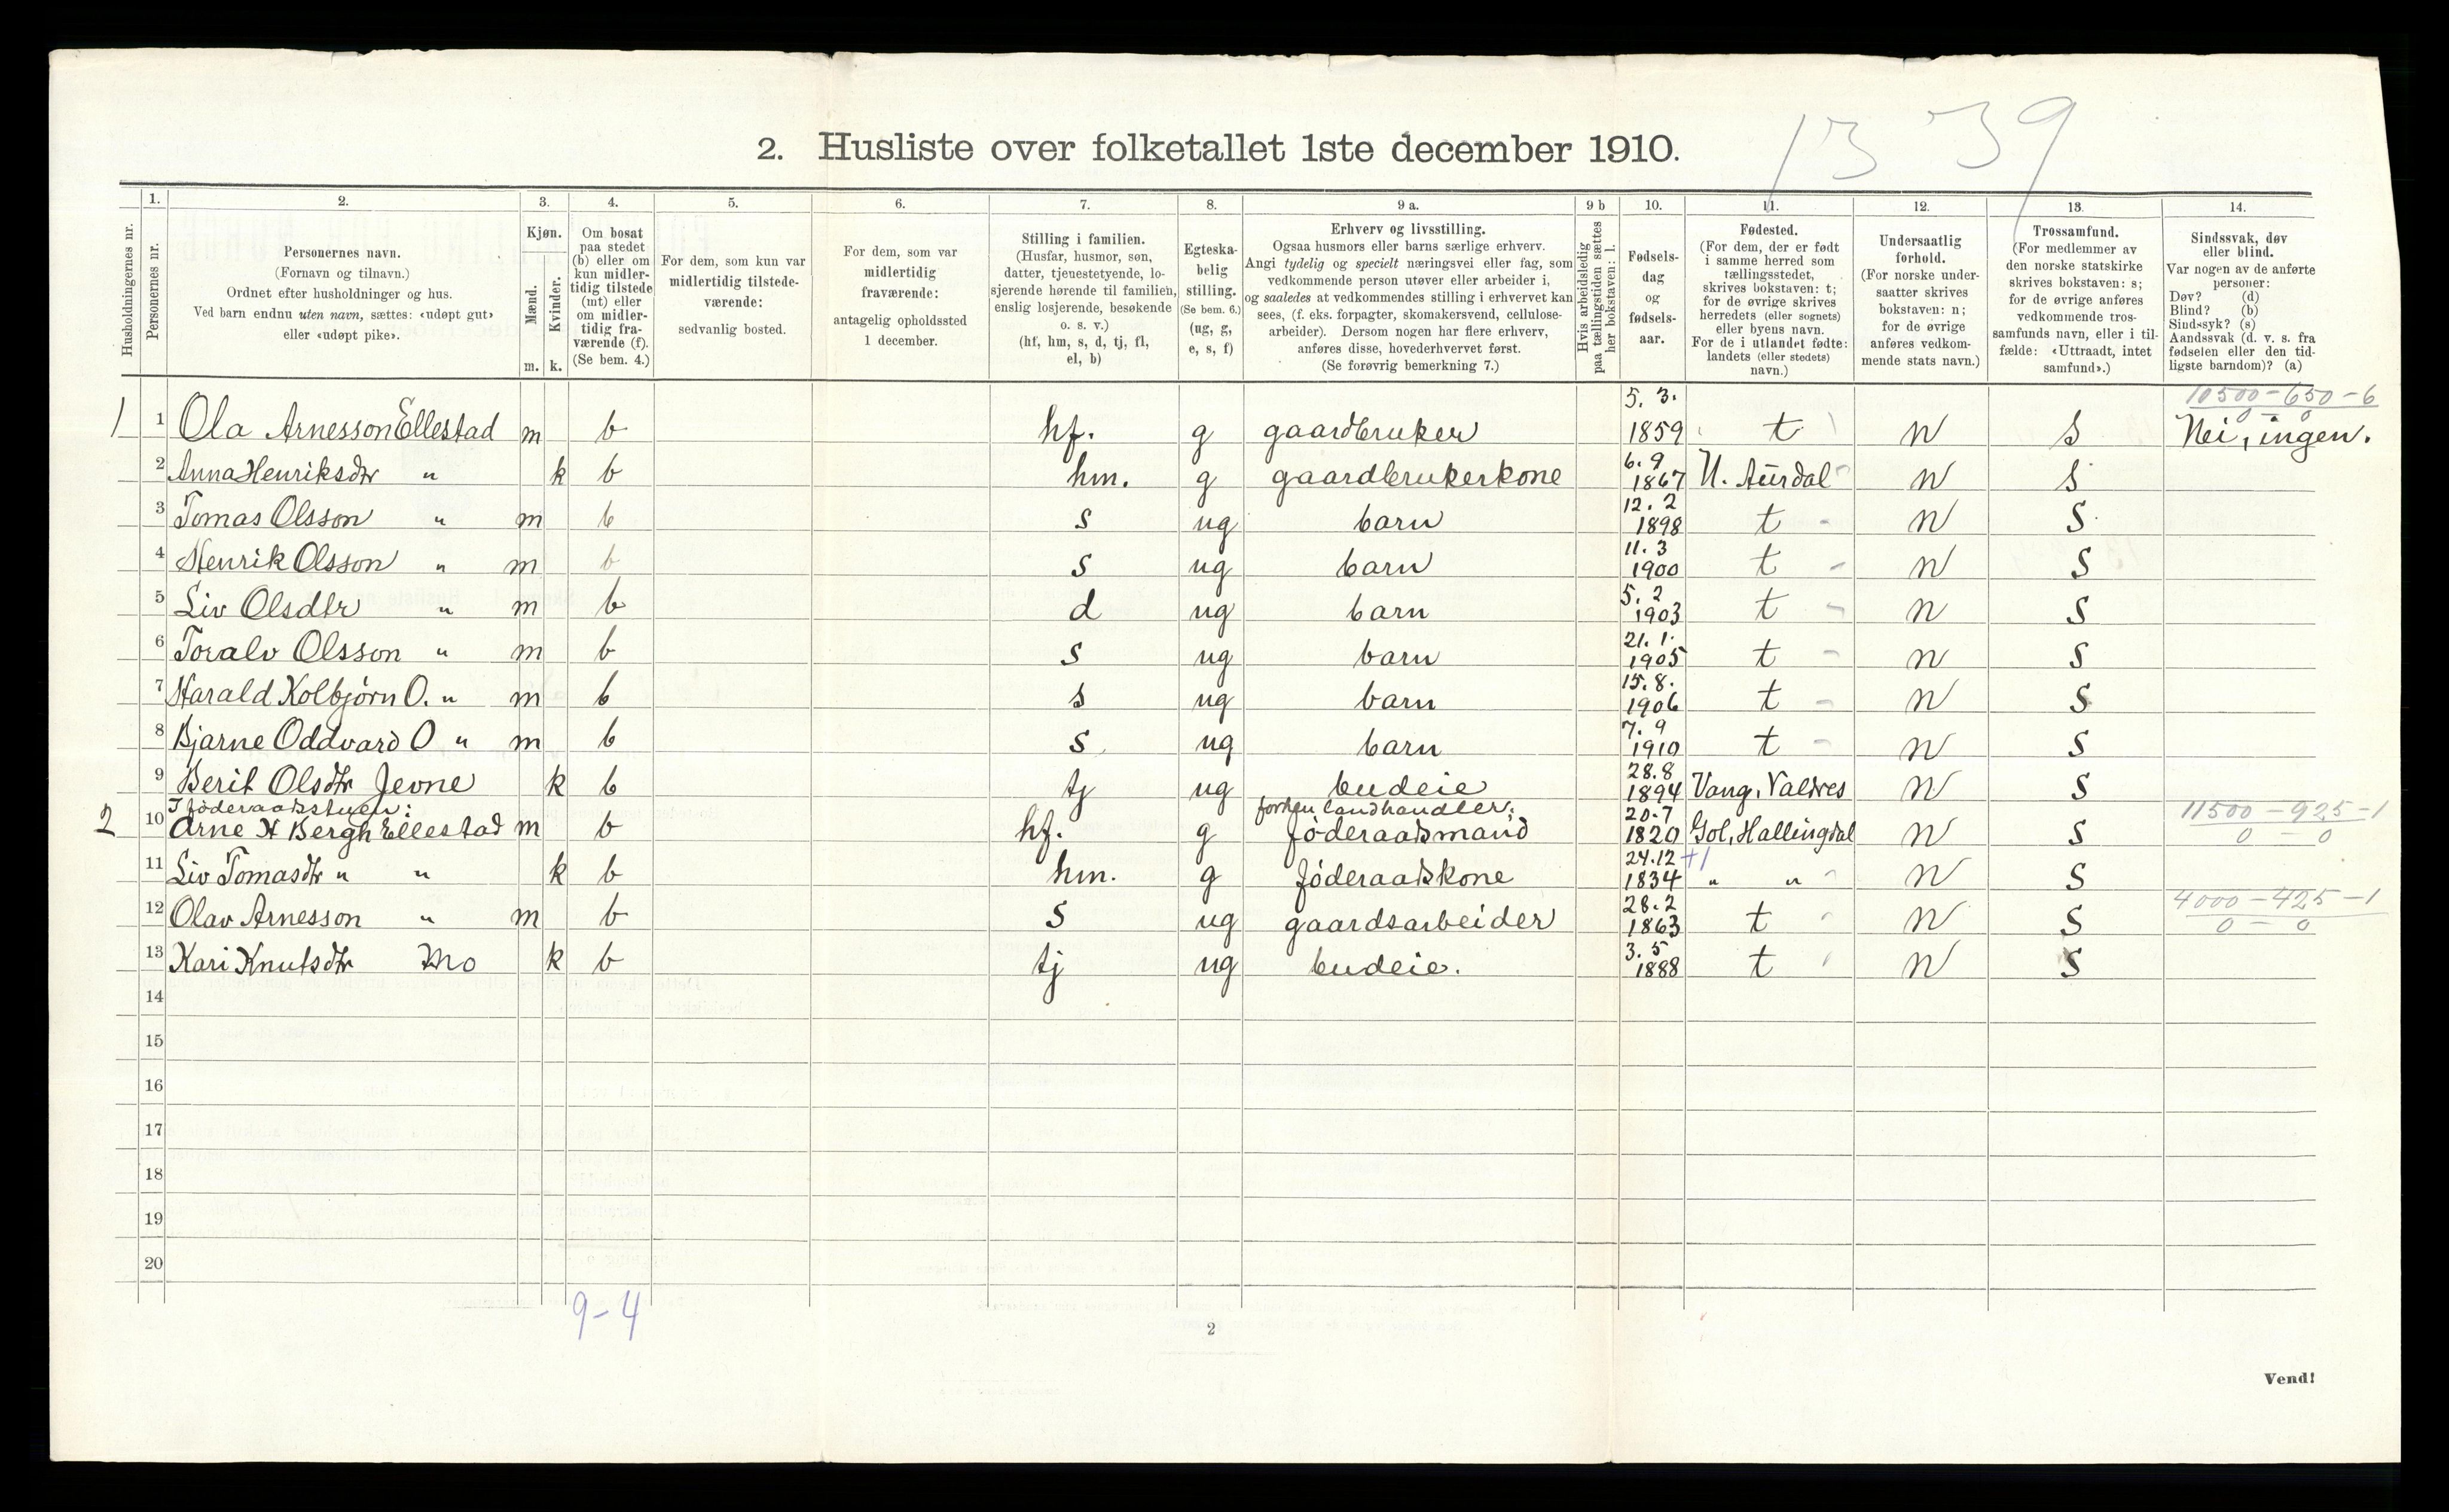 13 39
2. Husliste over folketallet 1ste december 1910.
Husholdningernes nr.
1.
Personernes nr.
2.
Personernes navn.
(Fornavn og tilnavn.)
Ordnet efter husholdninger og hus.
Ved barn endnu uten navn, sættes: «udøpt gut»
eller «udøpt pike».
3.
Kjøn.
Mænd.
Kvinder.
m. k.
4.
Om bosat
paa stedet
(b) eller om
kun midler-
tidig tilstede
(mt) eller
om midler-
tidig fra-
værende (f).
(Se bem. 4.)
5.
For dem, som kun var
midlertidig tilstede-
værende:
sedvanlig bosted.
6.
For dem, som var
midlertidig
fraværende:
antagelig opholdssted
1 december.
7.
Stilling i familien.
(Husfar, husmor, søn,
datter, tjenestetyende, lo-
sjerende hørende til familien,
enslig losjerende, besøkende
o. s. v.)
(hf, hm, s, d, tj, fl,
el, b)
8.
Egteska-
belig
stilling.
(Se bem. 6.)
(ug, g,
e, s, f)
9 a.
Erhverv og livsstilling.
Ogsaa husmors eller barns særlige erhverv.
Angi tydelig og specielt næringsvei eller fag, som
vedkommende person utøver eller arbeider i,
og saaledes at vedkommendes stilling i erhvervet kan
sees, (f. eks. forpagter, skomakersvend, cellulose-
arbeider). Dersom nogen har flere erhverv,
anføres disse, hovederhvervet først.
(Se forøvrig bemerkning 7.)
9 b
Hvis arbeidsledig
paa tællingstiden sættes
her bokstaven: l.
10.
Fødsels-
dag
og
fødsels-
aar.
11.
Fødested.
(For dem, der er født
i samme herred som
tællingsstedet,
skrives bokstaven: t;
for de øvrige skrives
herredets (eller sognets)
eller byens navn.
For de i utlandet fødte:
landets (eller stedets)
navn.)
12.
Undersaatlig
forhold.
(For norske under-
saatter skrives
bokstaven: n;
for de øvrige
anføres vedkom-
mende stats navn.)
13.
Trossamfund.
(For medlemmer av
den norske statskirke
skrives bokstaven: s;
for de øvrige anføres
vedkommende tros-
samfunds navn, eller i til-
fælde: «Uttraadt, intet
samfund».)
14.
Sindssvak, døv
eller blind.
Var nogen av de anførte
personer:
Døv? (d)
Blind? (b)
Sindssyk? (s)
Aandssvak (d. v. s. fra
fødselen eller den tid-
ligste barndom)? (a)
10500-650-6
0-0
1 1 Ola Arnesson Ellestad m b hf. g gaardbruker 5. 3. 1859 t n s Nei, ingen.
2 Anna Henriksdtr " k b hm. g gaardbrukerkone 6. 9 1867 N. Aurdal n s
3 Tomas Olsson " m b s ug barn 12. 2 1898 t n s
4 Henrik Olsson " m b s ug barn 11. 3 1900 t n s
5 Liv Olsdtr " m b d ug barn 5. 2 1903 t n s
6 Toralv Olsson " m b s ug barn 21. 1. 1905 t n s
7 Harald Kolbjørn O. " m b s ug barn 15. 8. 1906 t n s
8 Bjarne Oddvard O " m b s ug barn 7. 9 1910 t n s
9 Berit Olsdtr Jevne k b tj ug budeie 28. 8 1894 Vang, Valdres n s
I føderaadsstuen: forhen landhandler; 11500-925-1
2 10 Arne H Bergh Ellestad m b hf. g føderaadsmand 20. 7 1820 Gol, Hallingdal n s 0-0
11 Liv Tomasdtr " " k b hm. g føderaadskone 24. 12 +1 1834 " " n s
4000-425-1
12 Olav Arnesson " m b s ug gaardsarbeider 28. 2 1863 t n s 0-0
13 Kari Knutsdtr Mo k b tj ug budeie. 3. 5 1888 t n s
14
15
16
17
18
19
20
9-4
2
Vend!